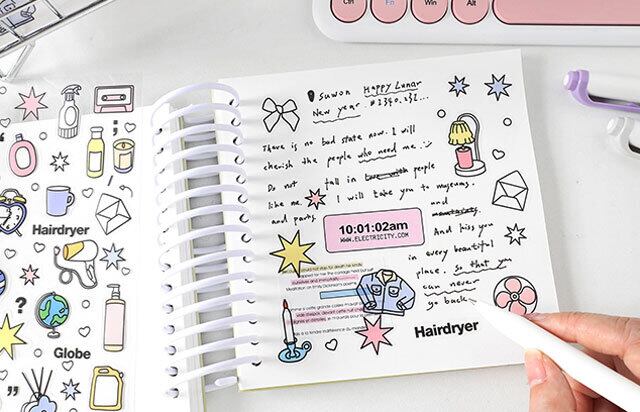 Ctrl
Fn
Win
Alt
suwon Happy Lunar
New year.
There is no bad state now. I will
cherish the people who need me.
Do not fall in people
like me. I will take you to museums.
and parks, and
And kiss you
in every beautiful
place. so that you
can never
go back
10:01:02am
WWW.ELECTRICITY.COM
Hairdryer
Hairdryer
?
Globe